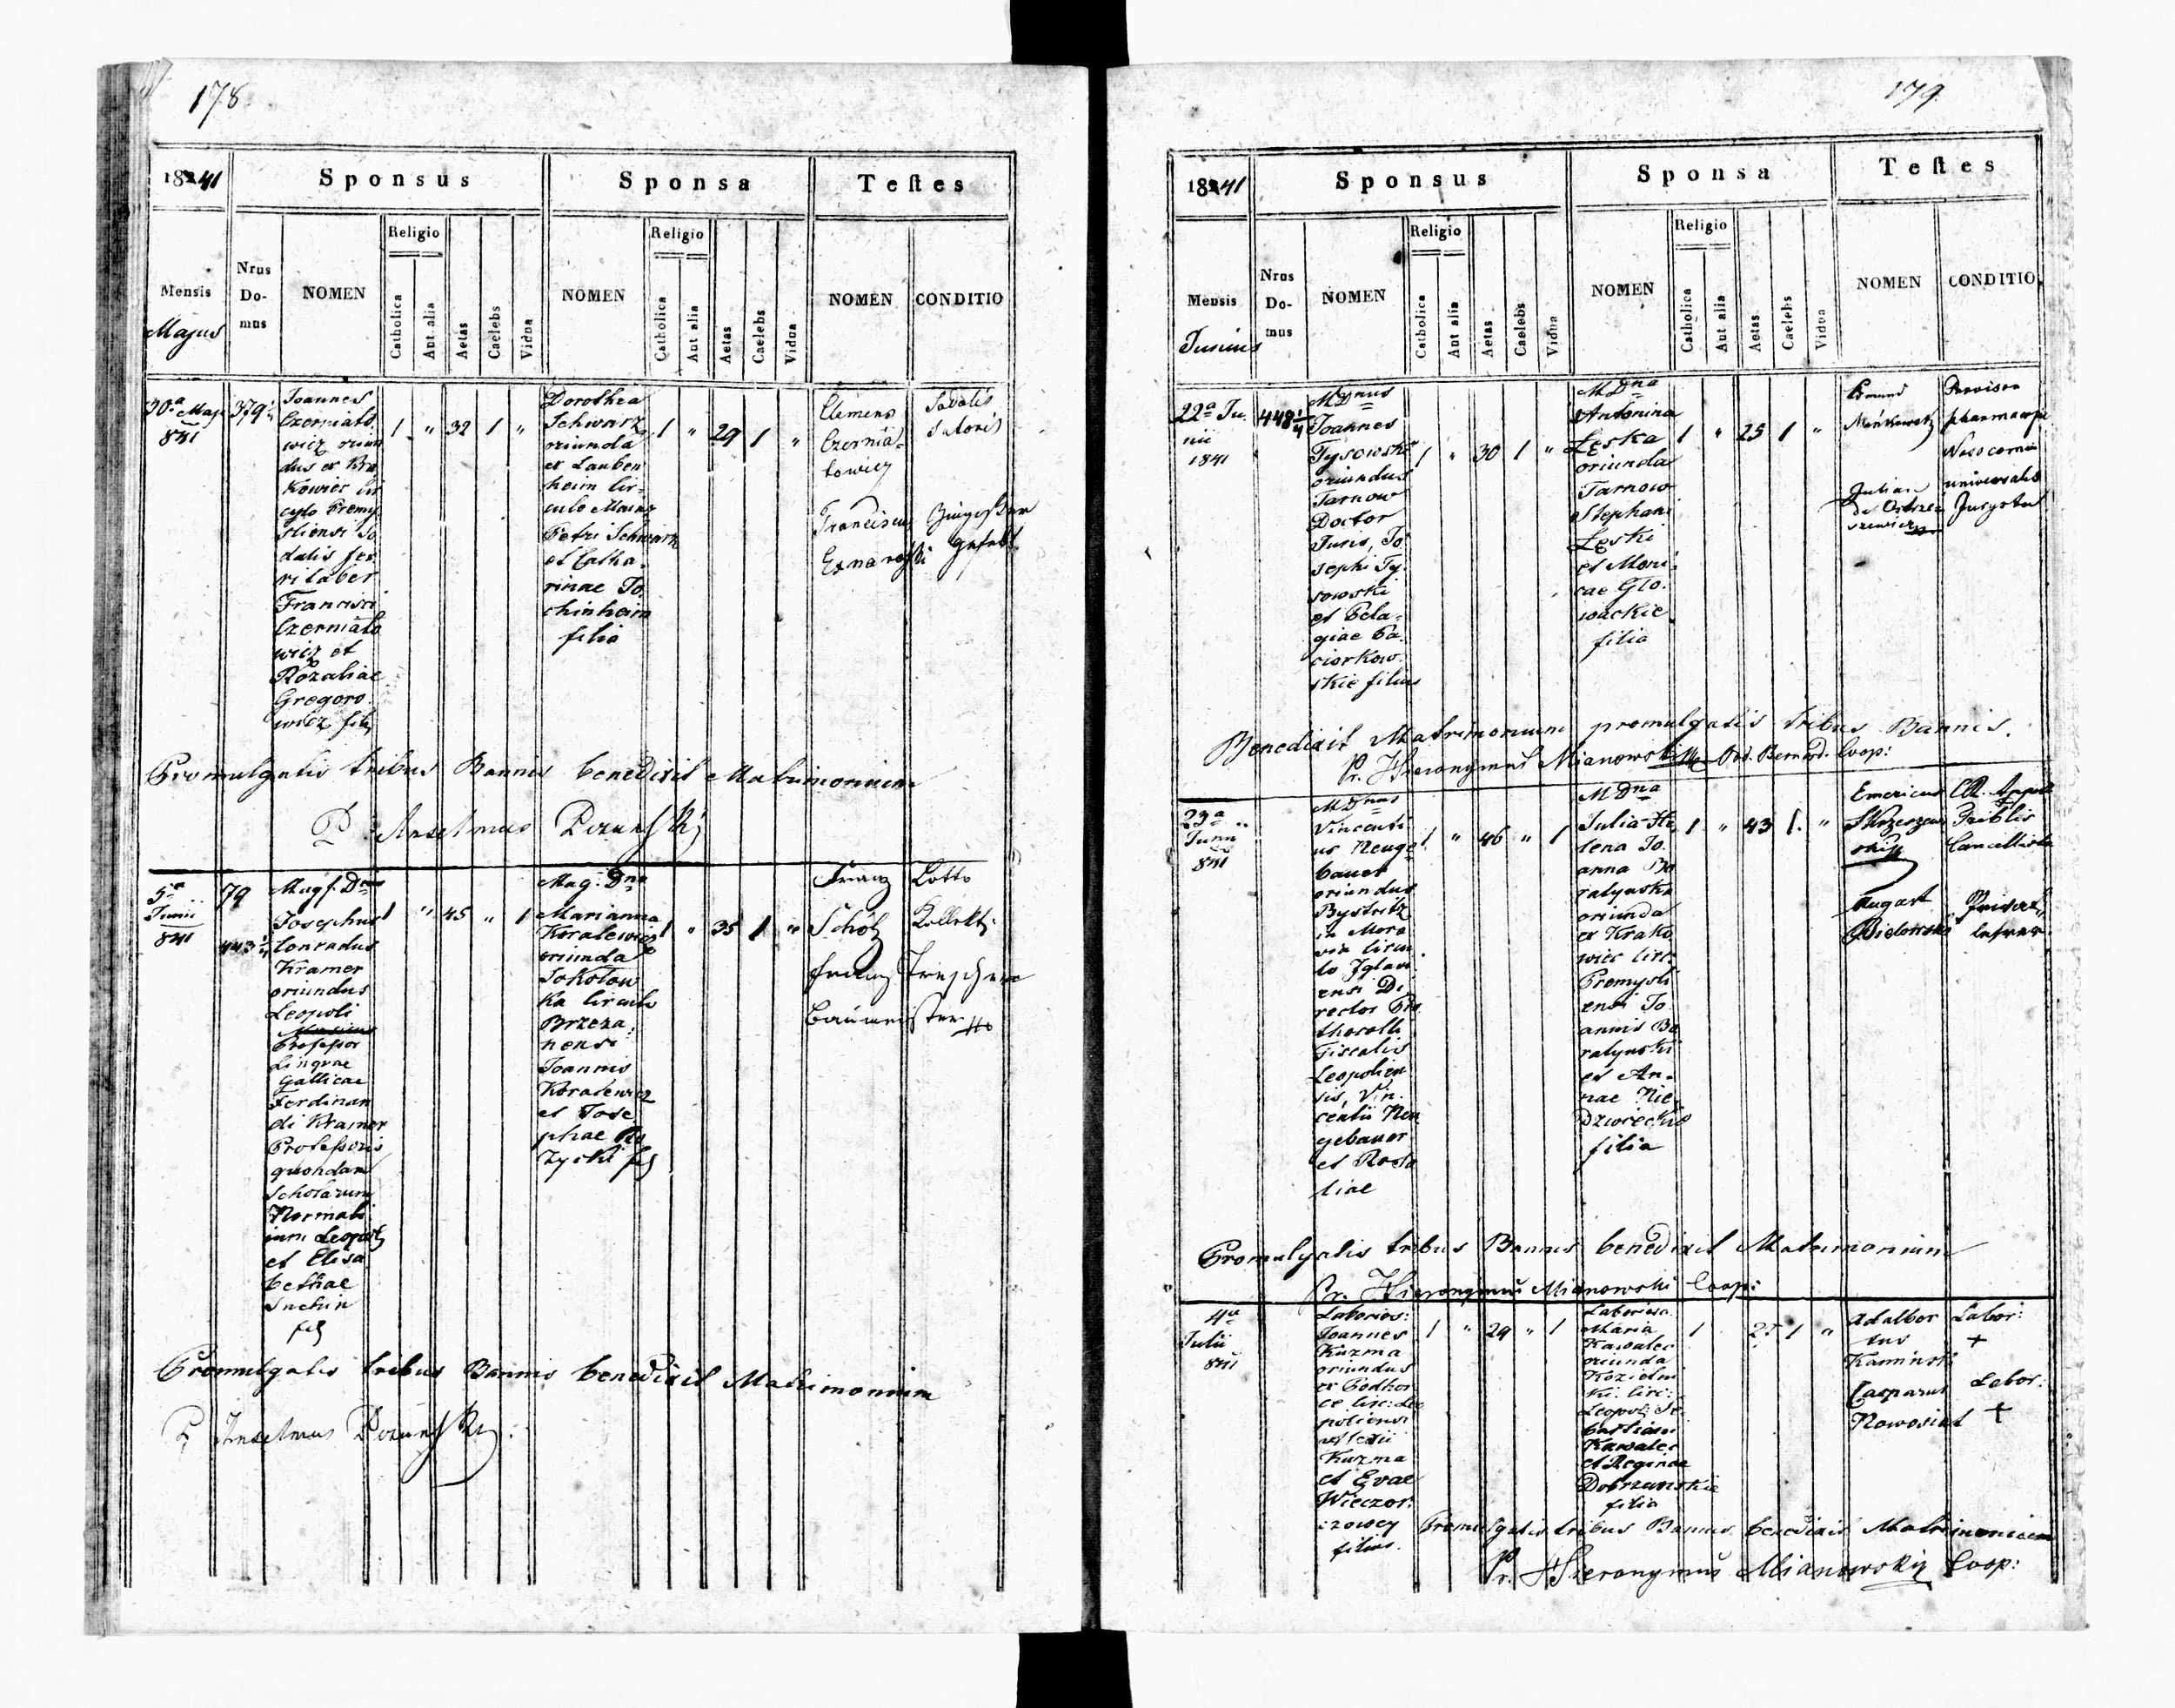 178
1841
Sponsus
Sponsa
Teſtes
Mensis
Majus
Nrus
Do-
mus
NOMEN
Religio
Catholica
Aut alia
Aetas
Caelebs
Vidua
NOMEN
Religio
Catholica
Aut alia
Aetas
Caelebs
Vidua
NOMEN
CONDITIO
30a Maji
841
379
Joannes
Czerniato
wicz oriun
dus ex Kra
kowiec Cir
culo Premy
sliensi So
dalis fer
ri faber
Francisci
Czerniato
wicz et
Rozaliae
Gregoro
wicz
1 " 32 1 "
Dorothea
Schwarz
oriunda
ex Lauben
heim Cir
culo Mainz
Petri Schwarz
et Catha
rinae Jo
chinheim
filia
1 " 29 1 "
Clemens
Czernia-
towicz
Sodalis
Sutoris
Franciscus
Promulgatis tribus Bannis benedixit Matrimonium
P. Anselmus
5a
Junii
841
79
443
Josephus
Conradus
Kramer
oriundus
Leopoli
Professor
Linguae
Gallicae
Ferdinan
di Kramer
Professoris
quondam
Scholarum
Normali
um Leopoli
et Elisa
bethae
1 " 45 " 1
Mag. Dna
Marianna
Koralewicz
oriunda
Sokolow
ka Circulo
Brzeza
nensi
Joannis
Koralewicz
et Jose
phae Ro
zycki
1 " 35 1 "
Franz
Schölz
Lotto
Kollekt.
Franz
Baumeister
Promulgatis tribus Bannis benedixit Matrimonium
P. Anselmus
179
1841
Sponsus
Sponsa
Teſtes
Mensis
Junius
Nrus
Do-
mus
NOMEN
Religio
Catholica
Aut alia
Aetas
Caelebs
Vidua
NOMEN
Religio
Catholica
Aut alia
Aetas
Caelebs
Vidua
NOMEN
CONDITIO
22a Ju
nii
1841
448 1/4
MDnus
Joannes
Tysowski
oriundus
Tarnow
Doctor
Juris, Jo
sephi Ty
sowski
et Pela-
giae Pa
ciorkow
skie filius
1 " 30 1 "
MDna
Antonina
Łęska
oriunda
Tarnow
Stephani
Łęski
et Moni
cae Glo
wackie
filia
1 " 25 1 "
Provisor
Julian
de Ostrze
szewicz
Benedixit Matrimonium promulgatis tribus Bannis.
Pr. Hieronymus Mianowski Ord. Bernard. Coop:
23a
Junii
841
MDnus
Vincenti
us Neuge
bauer
oriundus
Bystritz
in Mora
via Circu
lo Iglavi
ensi Di
rector Pro
thocolli
Fiscalis
Leopolien
sis, Vin
centii Neu
gebauer
et Rosa
liae
1 " 46 " 1
MDna
Julia He
lena Jo
anna Bo
ratynska
oriunda
ex Krako
wiec Circ.
Premysli
ensi Jo
annis Bo
ratynski
et An-
nae Nie
dzwieckie
filia
1 " 43 1 "
Emericus
CR. Appell
Triblis
Cancellista
August
Bielowski
Promulgatis tribus Bannis benedixit Matrimonium
Pr. Hieronymus Mianowski Coop:
4a
Julii
841
Laborios:
Joannes
Kuzma
oriundus
ex Podhor
ce Circ: Leo
poliensi
Alexii
Kuzma
et Evae
Wieczor
zowey
filius.
1 " 29 " 1
Laboriosa
Maria
Kawalec
oriunda
Kozielni
ki Circ:
Leopoli Se
bastiani
Kawalec
et Reginae
Dobrzanskie
filia
1 1 "
Adalber
tus
Kaminski
Labor:
+
Casparus
Nowosiad
Labor:
+
Promulgatis tribus Bannis benedixit Matrimonium
Pr. Hieronymus Mianowski Coop: